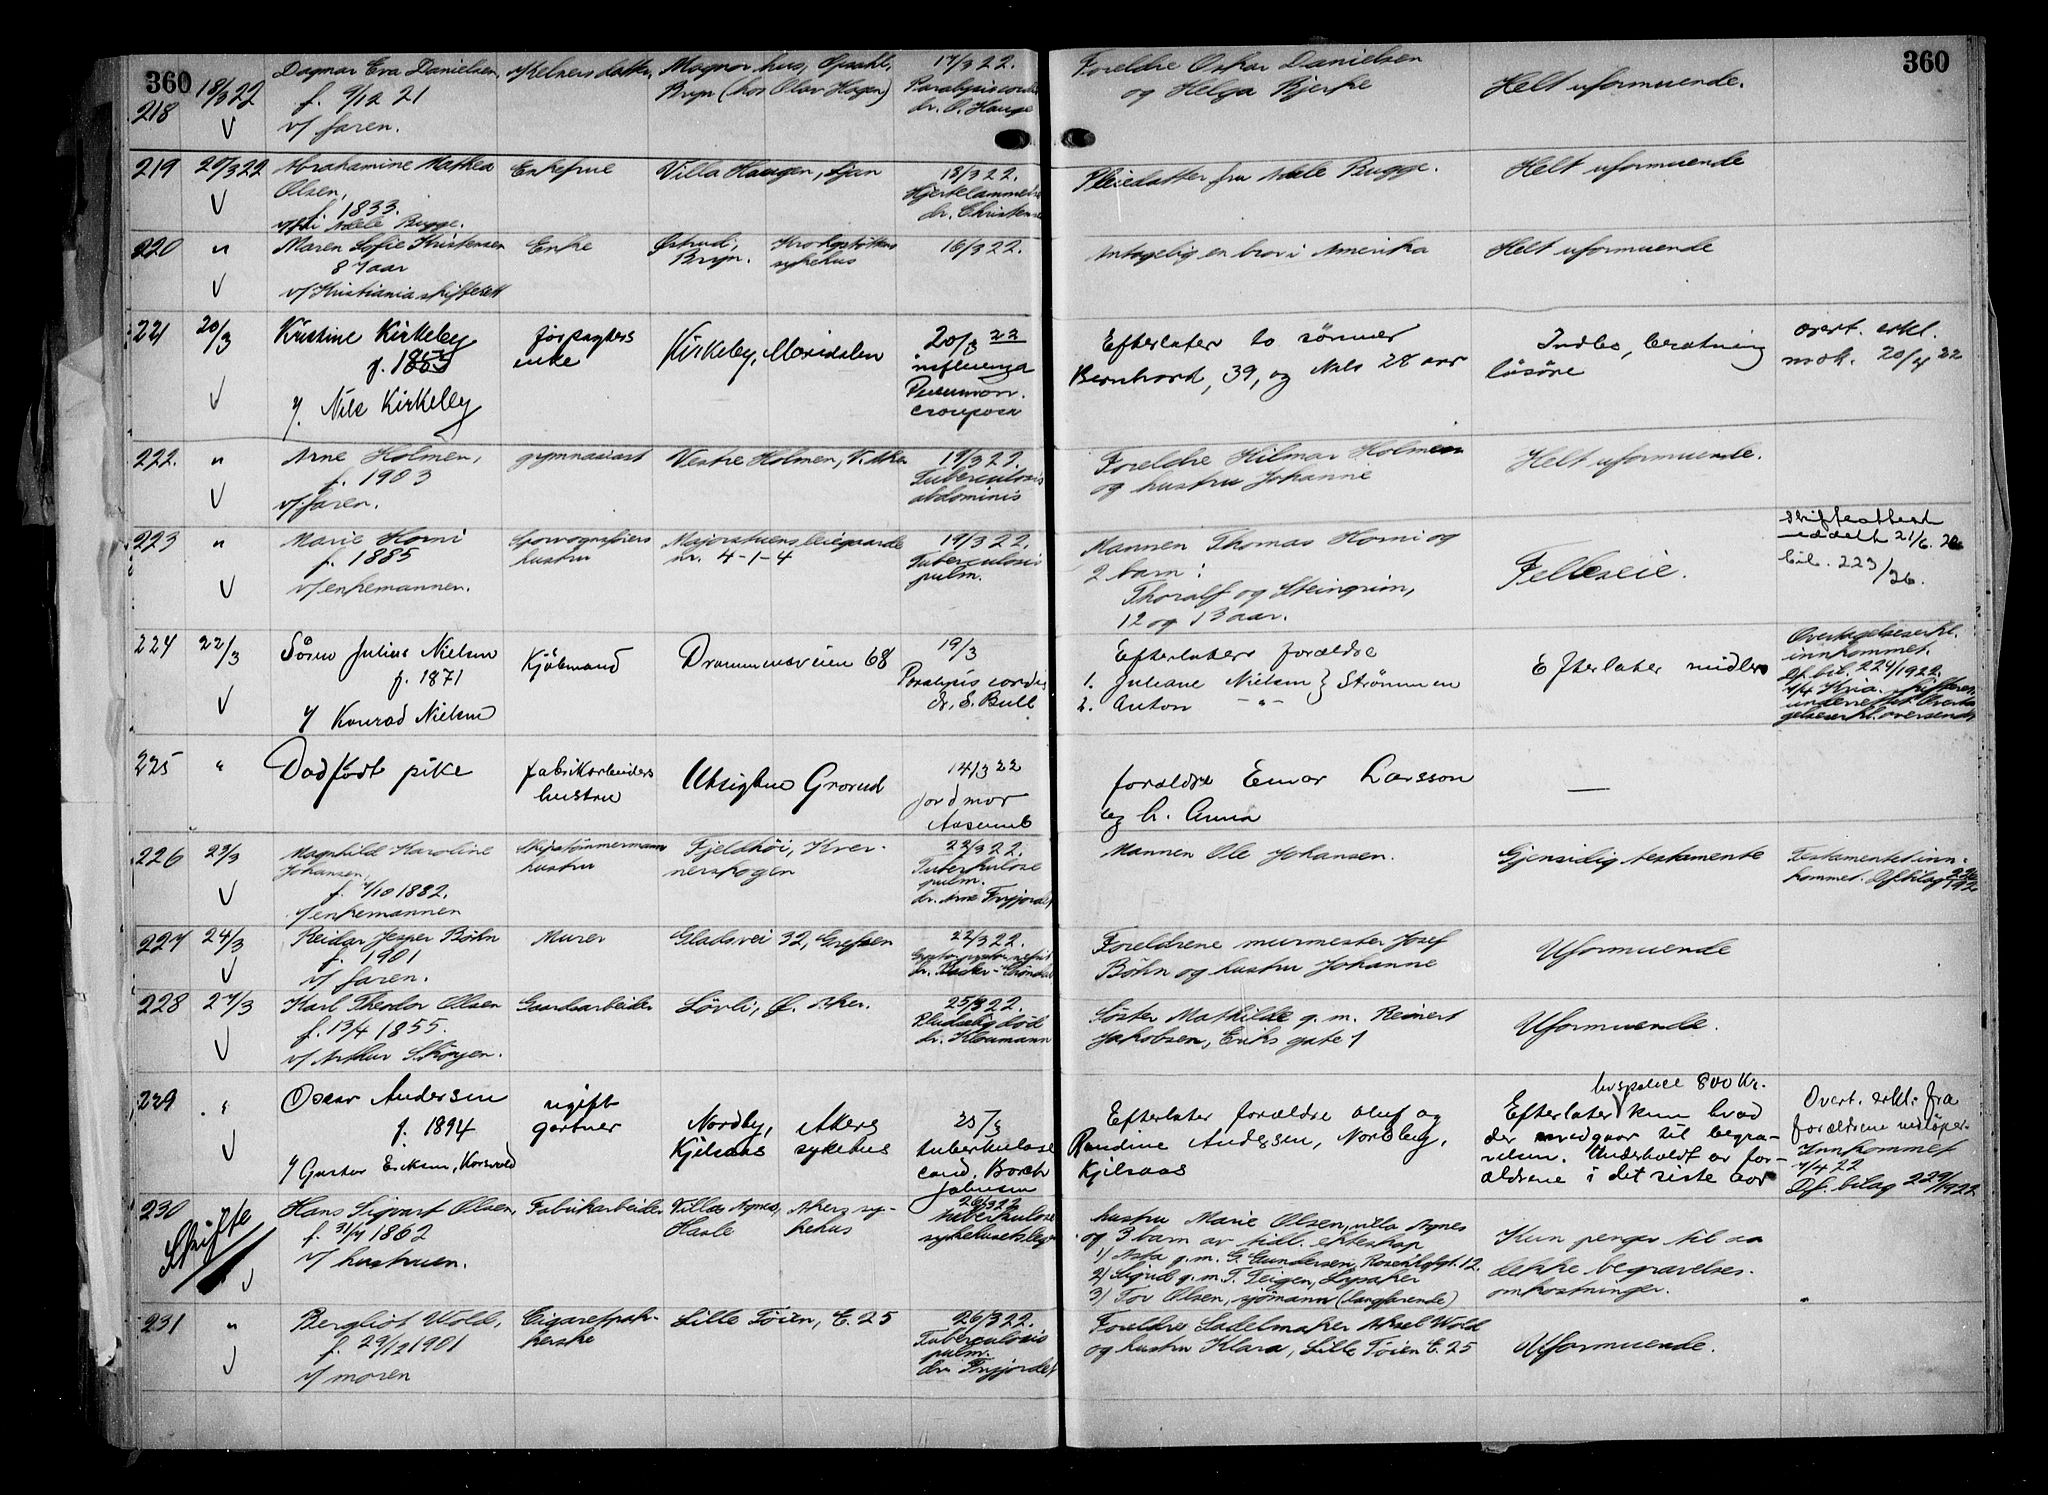 360
360
218
18/3 22
Dagmar Eva Danielsen,
f. 9/12 21
v/ faren.
Magnor hus, Opsahl,
Bryn (hos Olav Hagen)
17/3 22.
Paralysis cordis
dr. O. Hauge
Foreldre Oskar Danielsen
og Helga Bjerke
Helt uformuende.
219
20/3 22
Abrahamine Mathea
Olsen,
f. 1833.
v/ fru Adele Bugge.
Enkefrue
Villa Haugen, Ljan
18/3 22.
Hjertelammelse
dr. Christensen
Pleiedatter fru Adele Bugge.
Helt uformuende
220
"
Maren Sofie Kristensen
87 aar
v/ Kristiania skifterett
Enke
Østrud,
Bryn.
Krohgstøttens
sykehus
16/3 22.
Antagelig en bror i Amerika
Helt uformuende
221
20/3
Kristine Kirkeby
f. 1853
v/ Nils Kirkeby
forpagters
enke
Kirkeby, Maridalen
20/3 22
influenza
Pneumon.
crouposa
Efterlater to sönner
Bernhard, 39, og Nils 28 aar
Indbo, besætning
lösöre
overt. erkl.
mot. 20/4 22
222.
"
Arne Holmen,
f. 1903
v/ faren.
gymnasiast
Vestre Holmen, V. Aker
19/3 22.
Tuberculosis
abdominis
Foreldre Hilmar Holmen
og hustru Johanne
Helt uformuende.
223
"
Marie Horni
f. 1885
v/ enkemannen.
Sporvognsførers
hustru
Majorstuens leiegaarde
nr. 4-1-4
19/3 22.
Tuberculosis
pulm.
Mannen Thomas Horni og
2 barn:
Thoralf og Steingrim,
12 og 13 aar.
Felleseie.
Skifteattest
meddelt 21/6. 26
bil. 223/26.
224
22/3
Sören Julius Nielsen
f. 1871
v/ Konrad Nielsen
Kjöbmand
Drammensveien 68
19/3
Paralysis cordis
dr. S. Bull
Efterlater forældre
1. Juliane Nielsen } Strömmen
2. Anton -"-
Efterlater midler
Overtagelseserkl.
innkommet.
Df. bil. 224/1922.
4/4 Kria. skifteret
underrettet. Overta-
gelseserkl. oversendt
225
"
Dødfödt pike
fabrikarbeiders
hustru
Utsigten Grorud
14/3 22
jordmor
Aasemb
forældre Einar Larsson
og h. Anna
—
226
23/3
Magnhild Karoline
Johansen,
f. 4/10 1882.
v/ enkemannen
Skipstømmermanns
hustru
Fjeldhöi, Kver-
nerskogen
22/3 22.
Tuberkulose
pulm.
dr. Arne Fryjordet
Mannen Ole Johansen.
Gjensidig testamente
Testamentet inn-
kommet. Df. bilag 226/1922
227
24/3
Reidar Jesper Böhn
f. 1901
v/ faren.
Murer
Gladsvei 32, Grefsen
22/3 22.
Foreldrene murmester Josef
Böhn og hustru Johanne
Uformuende
228
27/3
Karl Theodor Olsen
f. 13/4 1855.
v/ Arthur Skøyen.
Gaardsarbeider
Lövli, Ø. Aker.
25/3 22.
Pludselig död
dr. Kloumann
Søster Mathilde g. m. Reinert
Jakobsen, Eriks gate 1
Uformuende.
229
"
Oscar Andersen
f. 1894
v/ Gustav Eriksen, Korsvold
ugift
gartner
Nordby,
Kjelsaas
Akers
sykehus
25/3
tuberkulose
cand. Borch
Johnsen
Efterlater forældre Oluf og
Randine Andersen, Nordby,
Kjelsaas
livspolice 800 Kr.
Efterlater kun hvad
der medgaar til begra-
velsen. Underholdt av for-
ældrene i det siste aar
Overt. erkl. fra
forældrene vedlöper.
Innkommet
4/4 22
Df. bilag 229/1922
230
Skifte
Hans Sigvart Olsen,
f. 31/7 1862
v/ hustruen.
Fabrikarbeider
Villa Agnes,
Hasle
Akers sy-
kehus
26/3 22
tuberkulose
sykehuslegen
hustru Marie Olsen, villa Agnes
og 3 barn av tidl. ekteskap
1) Asta g. m. G. Gundersen, Rosenhofgt. 12.
2) Sigrid g. m. T. Teigen, Lysaker
3) Tor Olsen, sjømann (langfarende)
Kun penger til aa
dekke begravelses-
omkostninger.
231
"
Bergliot Wold,
f. 29/12 1901
v/ moren
Cigarettpak-
kerske
Lille Töien, E. 25
26/3 22.
Tuberculosis
pulm.
dr. Fryjordet
Foreldre Sadelmaker Aksel Wold
og hustru Klara, Lille Töien E. 25
Uformuende.